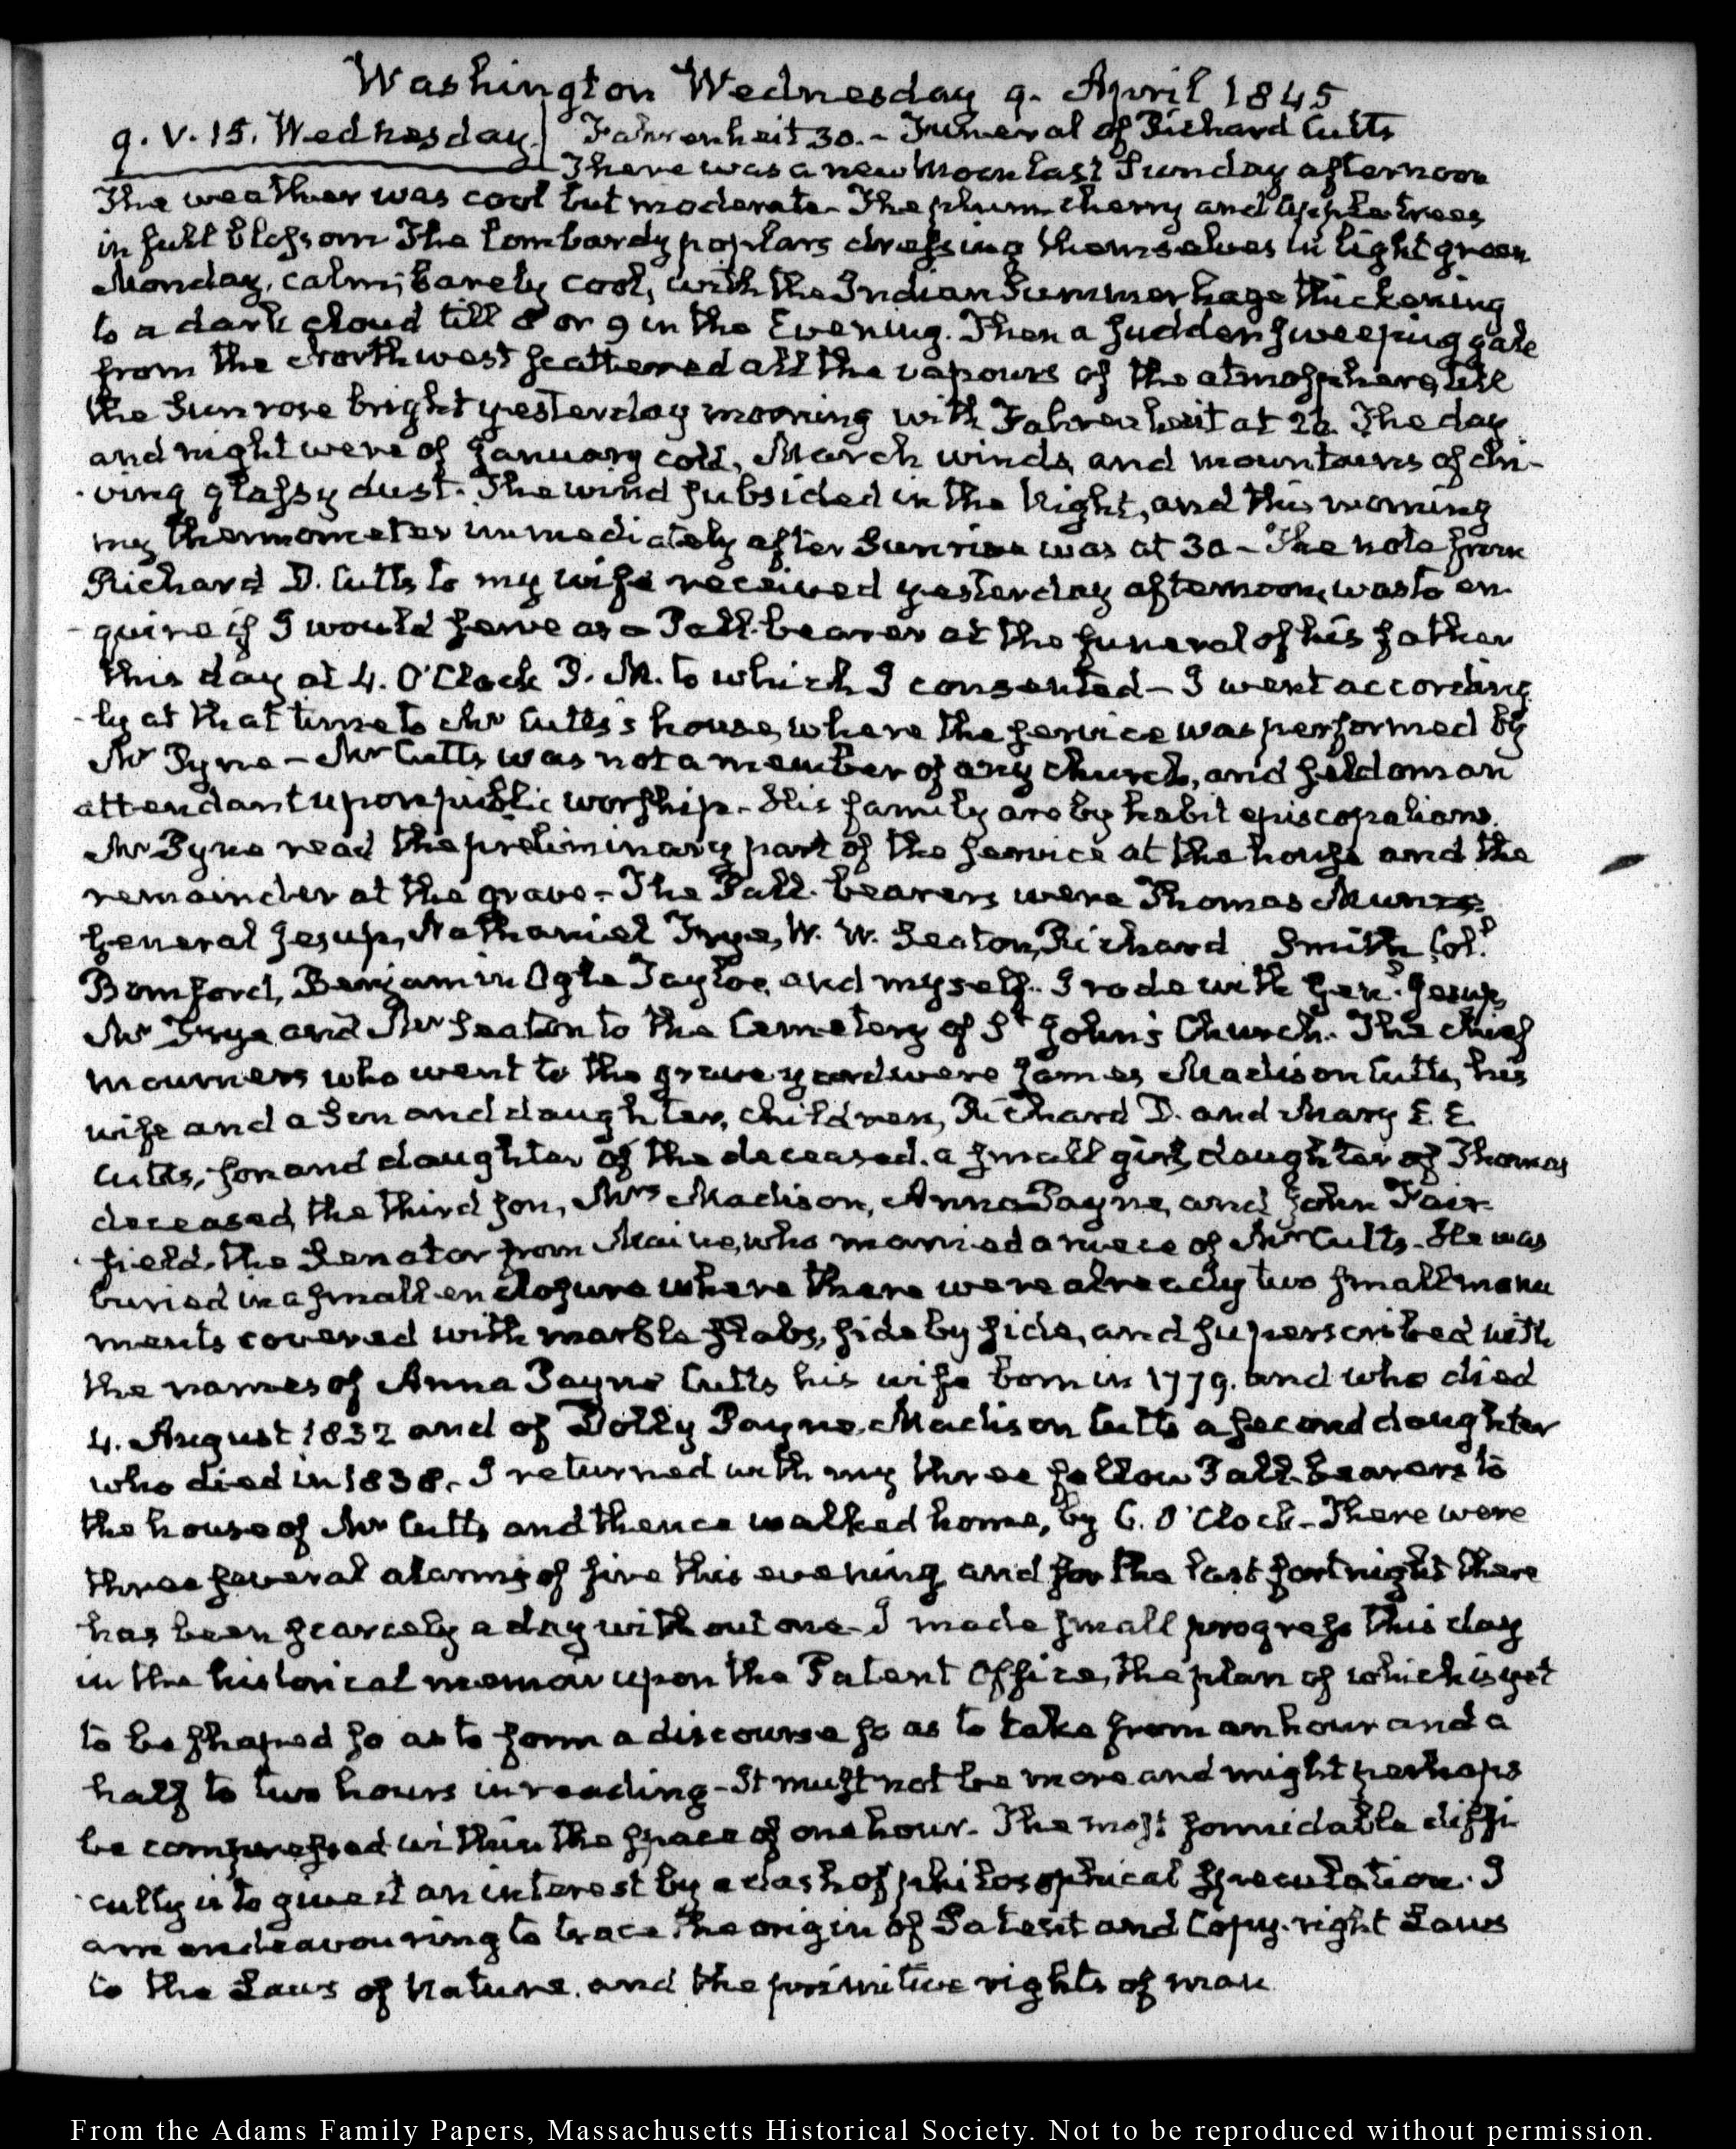 Washington Wednesday 9. April 1845
9. V. 15. Wednesday. Fahrenheit 30. - Funeral of Richard Cutts
There was a new Moon last Sunday afternoon
The weather was cool but moderate. The plum cherry and apple trees
in full blossom The Lombardy poplars dressing themselves in light green
Monday, calm, barely cool, with the Indian Summer haze thickening
to a dark cloud till 8 or 9 in the Evening. Then a sudden sweeping gale
from the Northwest scattered all the vapours of the atmosphere, till
the Sun rose bright yesterday morning with Fahrenheit at 28. The day
and night were of January cold, March winds, and mountains of dri-
ving glassy dust. The wind subsided in the Night, and this morning
my thermometer immediately after Sunrise was at 30 - The note from
Richard D. Cutts to my wife received yesterday afternoon, was to en-
quire if I would serve as a Pall-bearer at the funeral of his father
this day at 4. O'Clock P. M. to which I consented - I went according-
ly at that time to Mr Cutts's house, where the service was performed by
Mr Pyne - Mr Cutts was not a member of any church, and seldom an
attendant upon public worship. His family are by habit episcopalians.
Mr Pyne read the preliminary part of the service at the house and the
remainder at the grave. The Pall-bearers were Thomas Munro
General Jesup, Nathaniel Frye, W. W. Seaton, Richard Smith, Col.
Bomford, Benjamin Ogle Tayloe, and myself. I rode with Genl. Jesup,
Mr Frye and Mr Seaton to the Cemetery of St John's Church. The chief
mourners who went to the grave yard were James Madison Cutts, his
wife and a Son and daughter, children, Richard D. and Mary E. E.
Cutts, son and daughter of the deceased, a small girl, daughter of Thomas
deceased, the third son, Mrs Madison, Anna Payne, and John Fair-
field, the Senator from Maine, who married a niece of Mr Cutts. He was
buried in a small enclosure where there were already two small monu
ments covered with marble slabs, side by side, and superscribed with
the names of Anna Payne Cutts his wife born in 1779. and who died
4. August 1832 and of Dolly Payne Madison Cutts a second daughter
who died in 1838. I returned with my three fellow Pall-bearers to
the house of Mr Cutts and thence walked home, by 6. O'Clock - There were
three several alarms of fire this evening and for the last fortnight there
has been scarcely a day without one - I made small progress this day
in the historical memoir upon the Patent Office, the plan of which is yet
to be shaped so as to form a discourse so as to take from an hour and a
half to two hours in reading - It must not be more and might perhaps
be compressed within the space of one hour. The most formidable diffi-
culty is to give it an interest by a dash of philosophical speculation. I
am endeavouring to trace the origin of Patent and Copy-right Laws
to the Laws of Nature, and the primitive rights of man
From the Adams Family Papers, Massachusetts Historical Society. Not to be reproduced without permission.